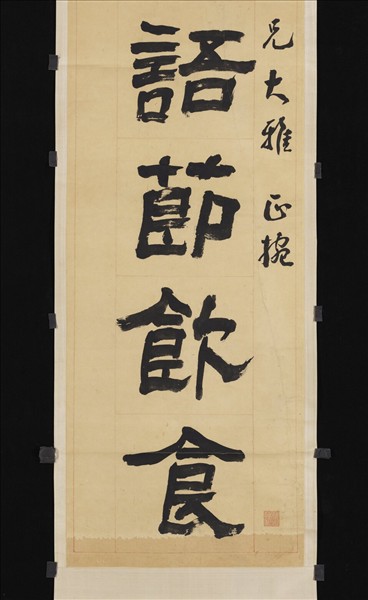 兄大雅 正捥
語節飲食